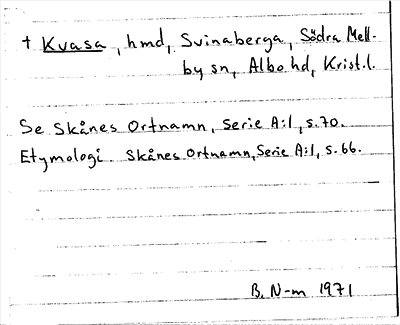 † Kvasa, hmd, Svinaberga, Södra Mell-
by sn, Albo hd, Krist.l.
Se Skånes Ortnamn, Serie A:1, s.70.
Etymologi. Skånes Ortnamn, Serie A:1, s.66.
B. N-m 1971